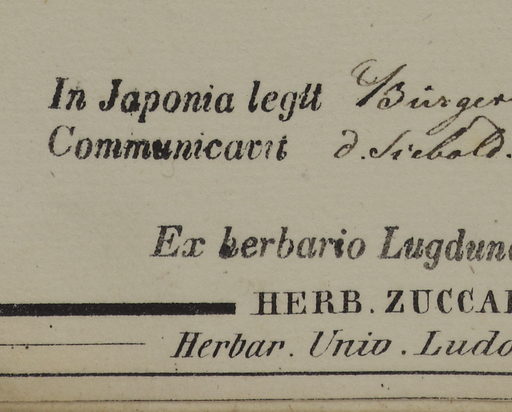 In Japonia legit Bürger
Communicavit d. Siebold.
Ex herbario Lugdun
HERB. ZUCCA
Herbar. Univ. Ludo